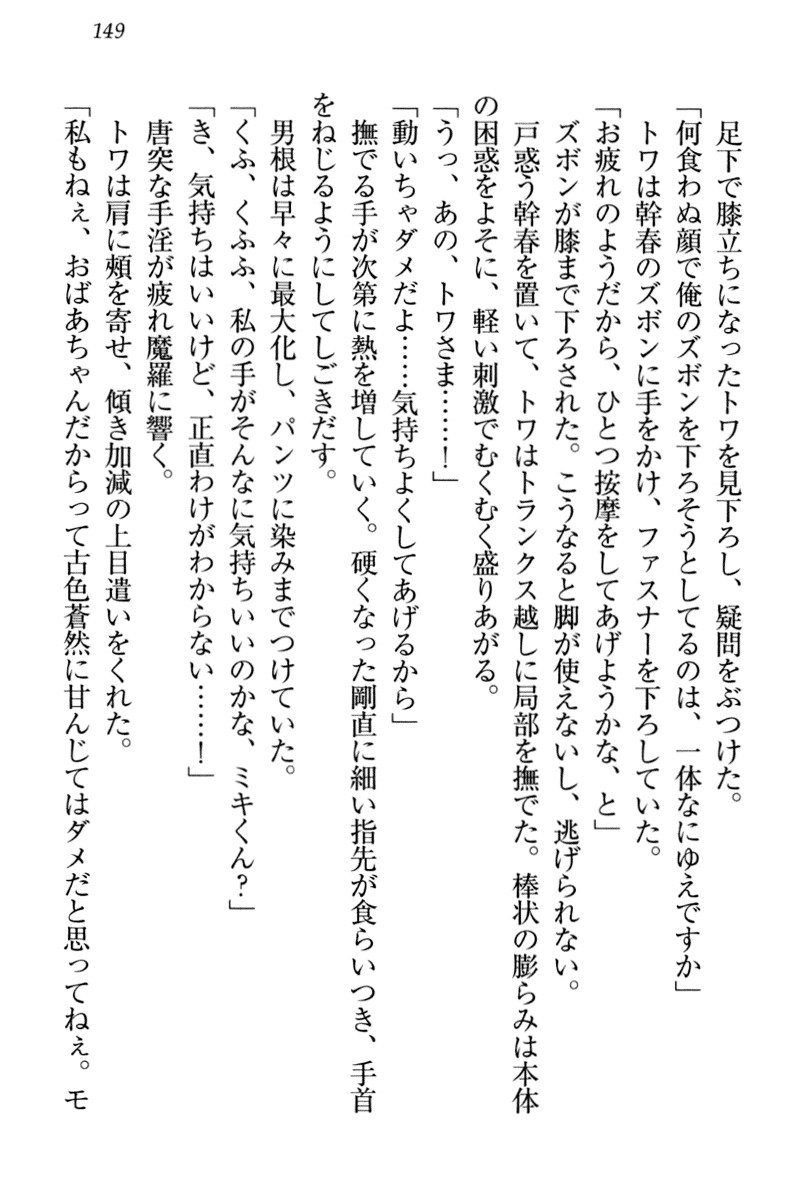 149
足下で膝立ちになったトワを見下ろし、疑問をぶつけた。
「何食わぬ顔で俺のズボンを下ろそうとしてるのは、一体なにゆえですか」
トワは幹春のズボンに手をかけ、ファスナーを下ろしていた。
「お疲れのようだから、ひとつ按摩をしてあげようかな、と」
ズボンが膝まで下ろされた。こうなると脚が使えないし、逃げられない。
戸惑う幹春を置いて、トワはトランクス越しに局部を撫でた。棒状の膨らみは本体
の困惑をよそに、軽い刺激でむくむく盛りあがる。
「うっ、あの、トワさま……！」
「動いちゃダメだよ……気持ちよくしてあげるから」
撫でる手が次第に熱を増していく。硬くなった剛直に細い指先が食らいつき、手首
をねじるようにしてしごきだす。
男根は早々に最大化し、パンツに染みまでつけていた。
「くふ、くふふ、私の手がそんなに気持ちいいのかな、ミキくん？」
「き、気持ちはいいけど、正直わけがわからない……！」
唐突な手淫が疲れ魔羅に響く。
トワは肩に頬を寄せ、傾き加減の上目遣いをくれた。
「私もねぇ、おばあちゃんだからって古色蒼然に甘んじてはダメだと思ってねぇ。モ